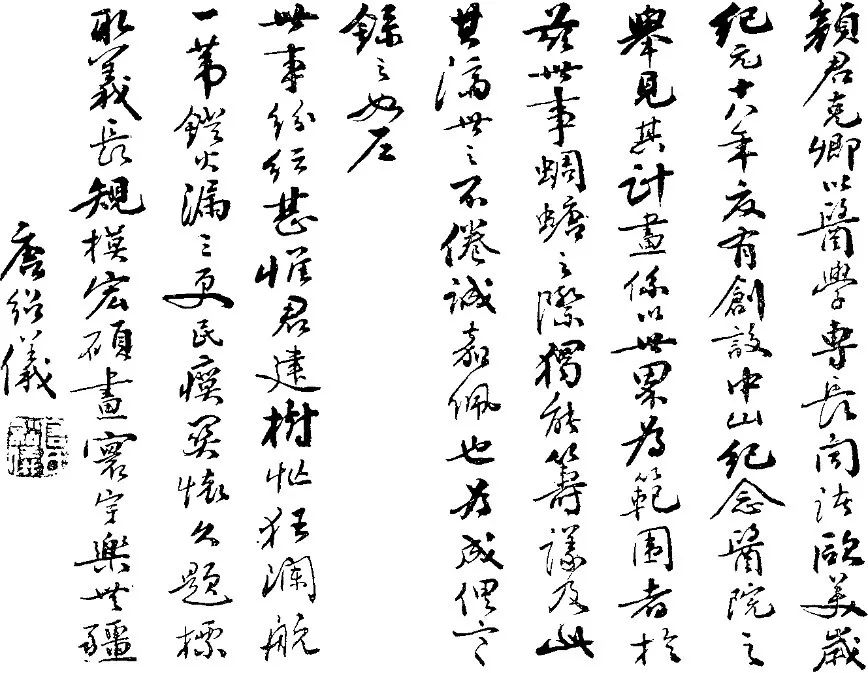 顏君克卿以醫學專長聞歐美歲
紀元十八年度有創設中山紀念醫院之
舉見其計畫係以世界為範圍者於
茲世事蜩螗之際獨能籌議及此
其濟世之不倦誠嘉佩也為成俚言
錄之如左
世事紛紜甚惟君建樹忙狂瀾航
一葦鐙火漏三更民瘼關懷久題標
取義長規模宏碩畫寰宇樂無疆
唐紹儀